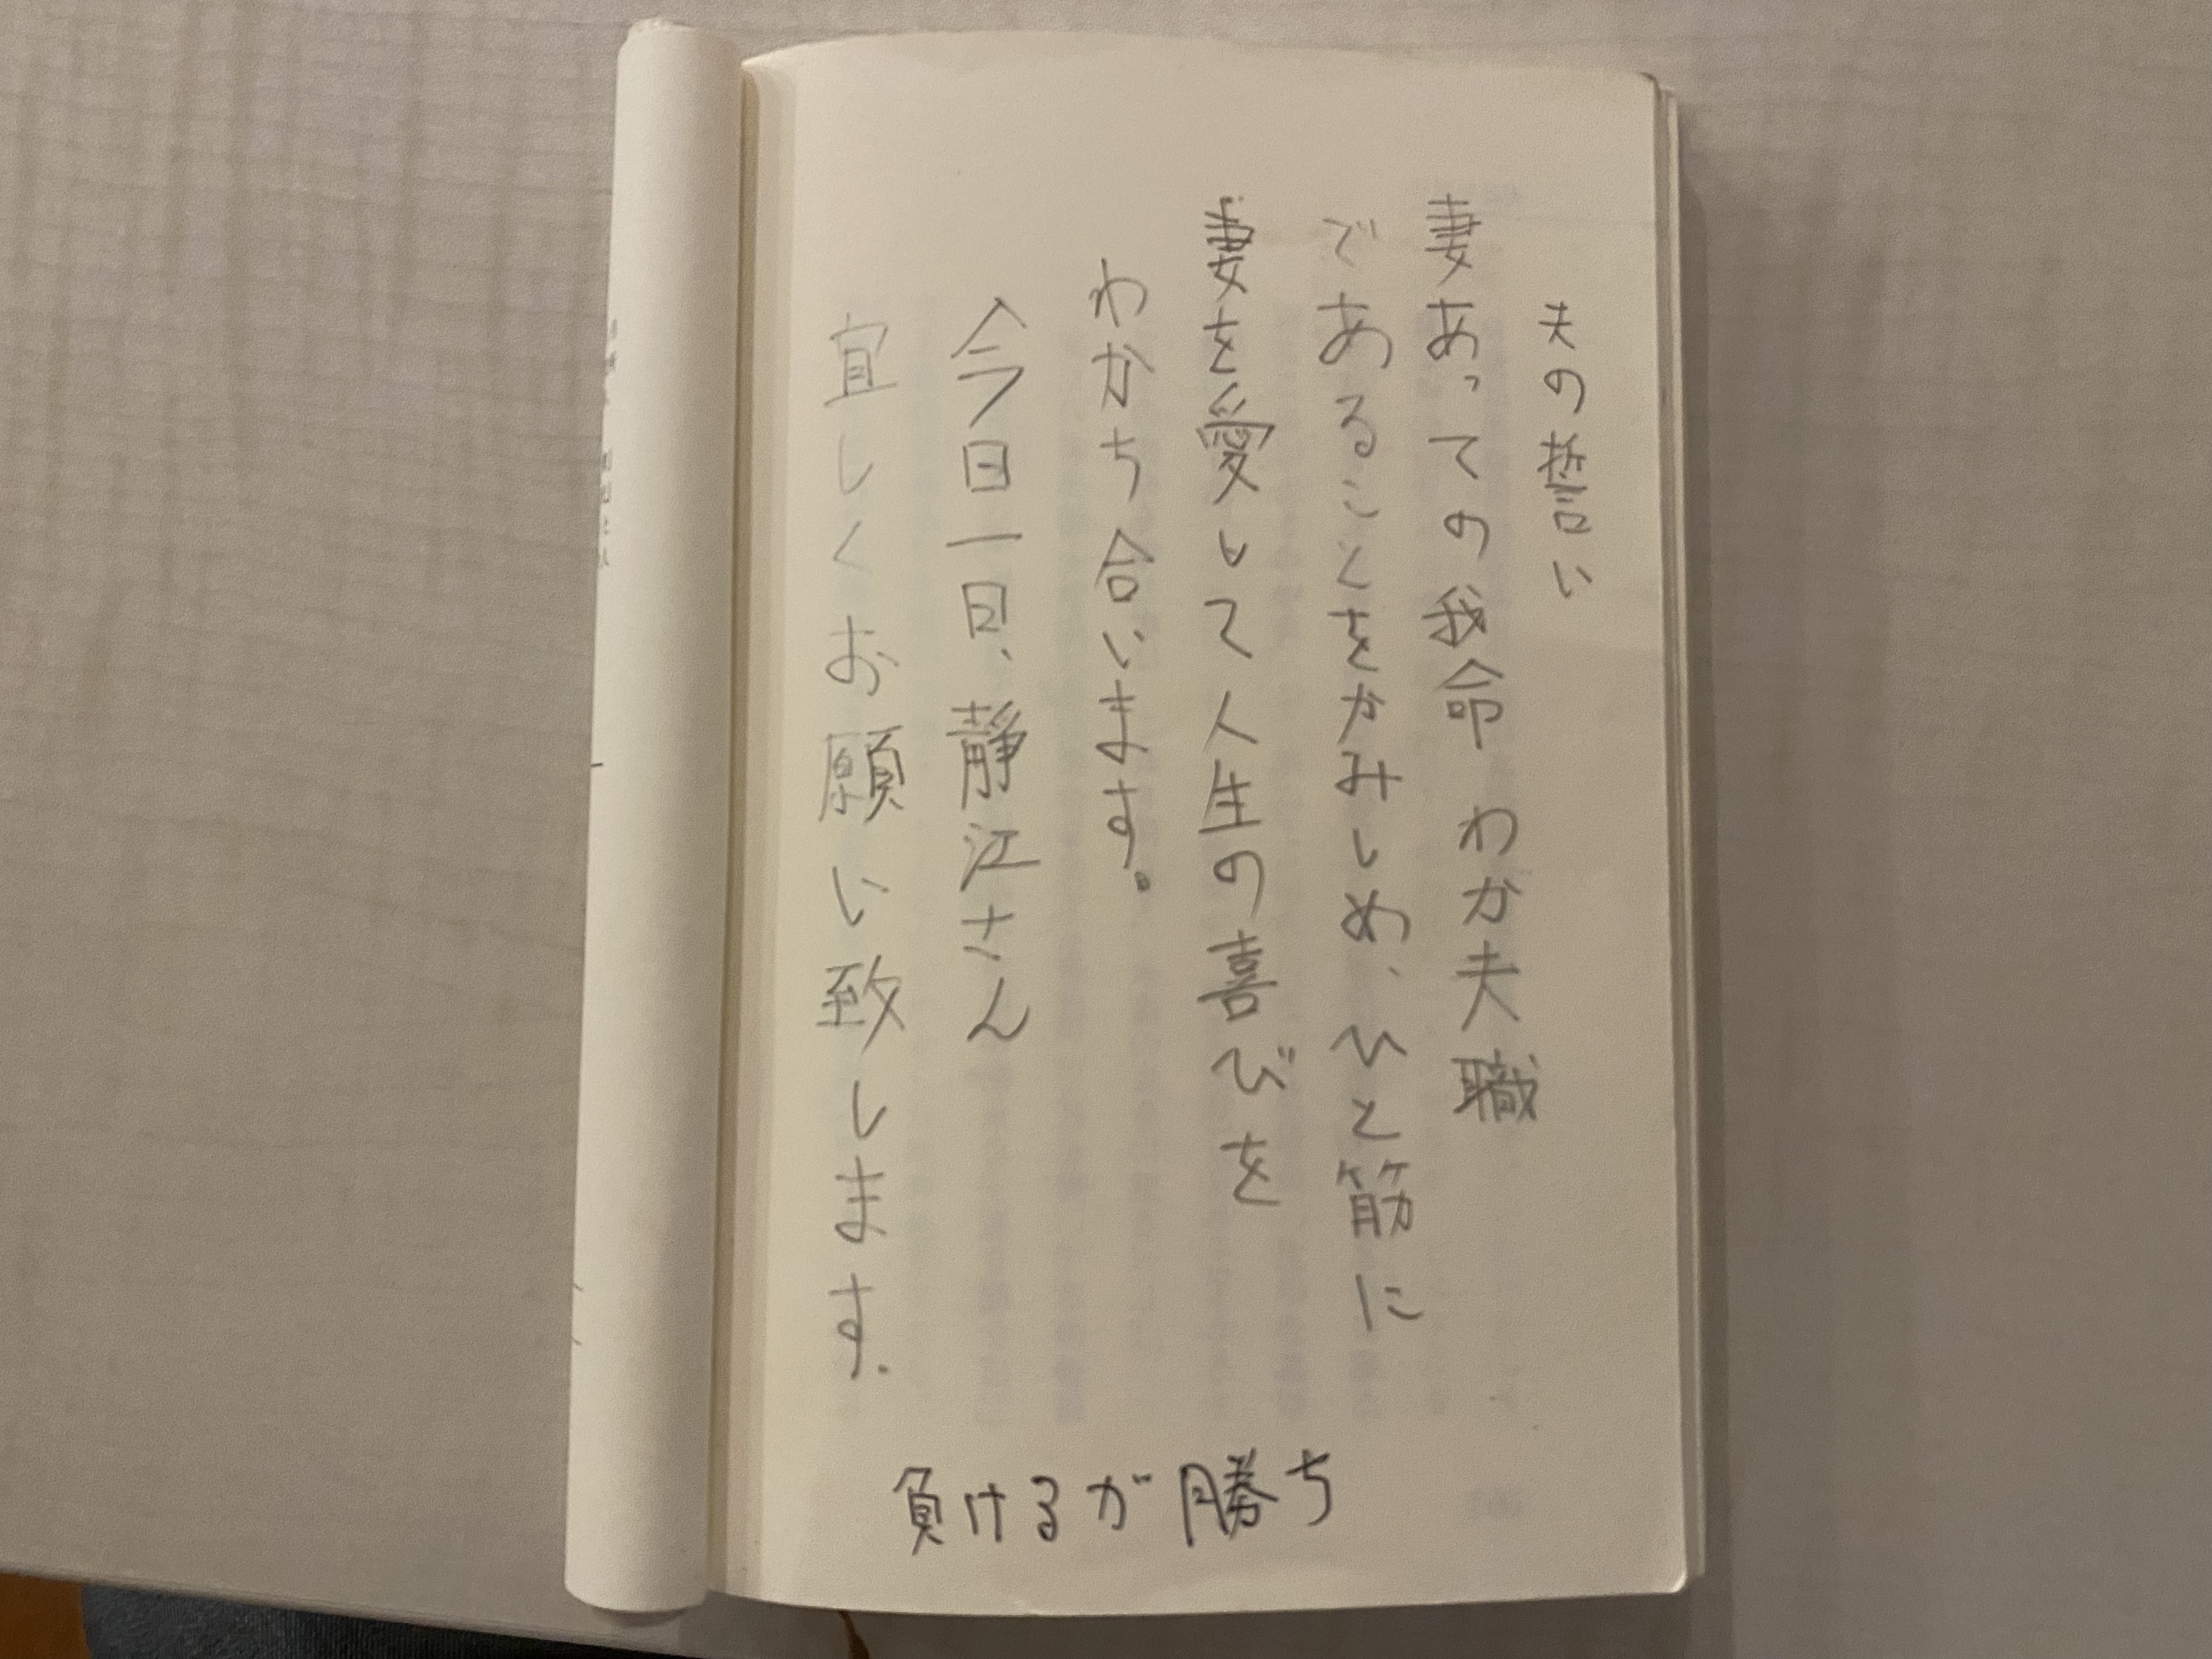 夫の誓い
妻あっての我命 わか夫職
であることをかみしめ、ひと筋に
妻を愛して人生の喜びを
わかち合います。
今日一日、静江さん
宜しくお願い致します.
負けるが勝ち